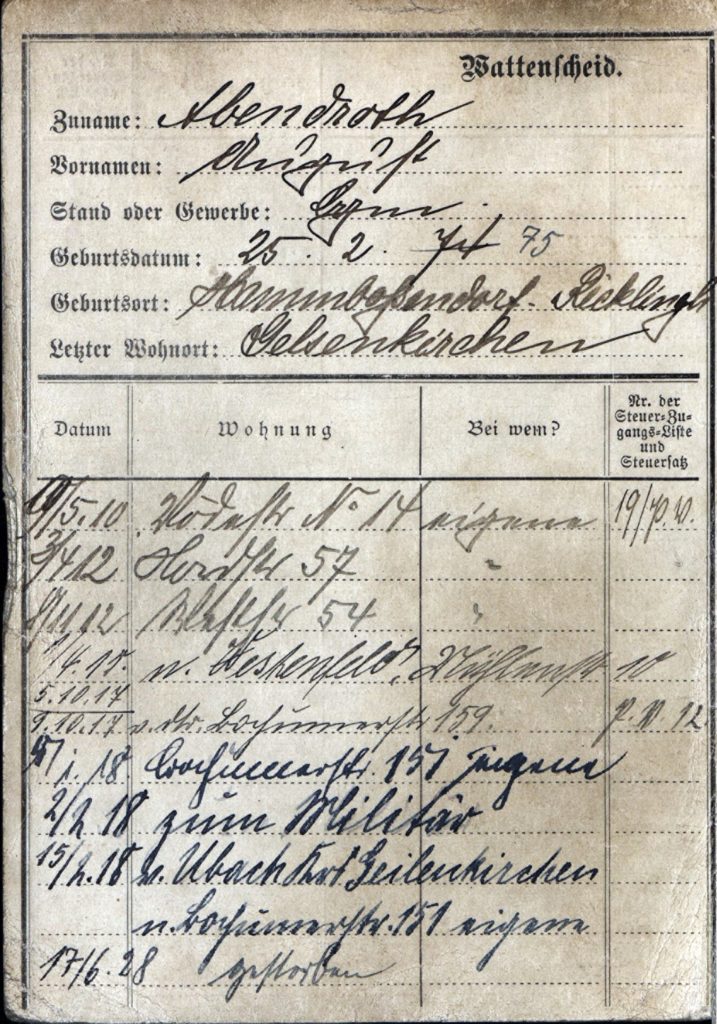 Wattenscheid.
Zuname: Abendroth
Vornamen: August
Stand oder Gewerbe: Bgm
Geburtsdatum: 25. 2. 74 75
Geburtsort: Recklingh
Letzter Wohnort: Gelsenkirchen
Datum Wohnung Bei wem? Nr. der Steuer-Zugangs-Liste und Steuersatz
19/5.10 Vödestr No 14 eigene 19/70.W.
2/4 12 Hordstr 57 "
54 "
n. Westenfeld, Mühlenstr 10
5.10.17
9.10.17 v. dtr. Bochumerstr 159. P. W. 12
1. 18 Bochumerstr. 151 eigene
2/2 18 zum Militär
15/2.18 v. Ubach Krs Geilenkirchen
n. Bochumerstr. 151 eigene
17/6. 28 gestorben